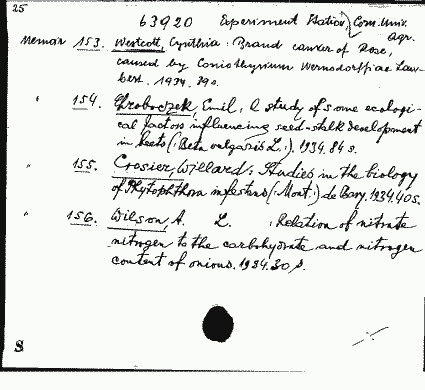 25
63920 Experiment Station, Corn. Univ.
agr.
Memoir 153. Westcott, Cynthia: Brand canker of Rose,
caused by Coniothyrium Wernsdorffiae Lau-
bert. 1934. 39 s.
" 154. Thoboczek, Emil, A study of some ecologi-
cal factors influencing seed-stalk development
in beets (Beta vulgaris L.). 1934. 84 s.
" 155. Crosier, Willard: Studies in the biology
of Phytophthora infestans (Mont.) de Bary. 1934. 40 s.
" 156. Wilson, A. L. : Relation of nitrate
nitrogen to the carbohydrate and nitrogen
content of onions. 1934. 30 s.
S